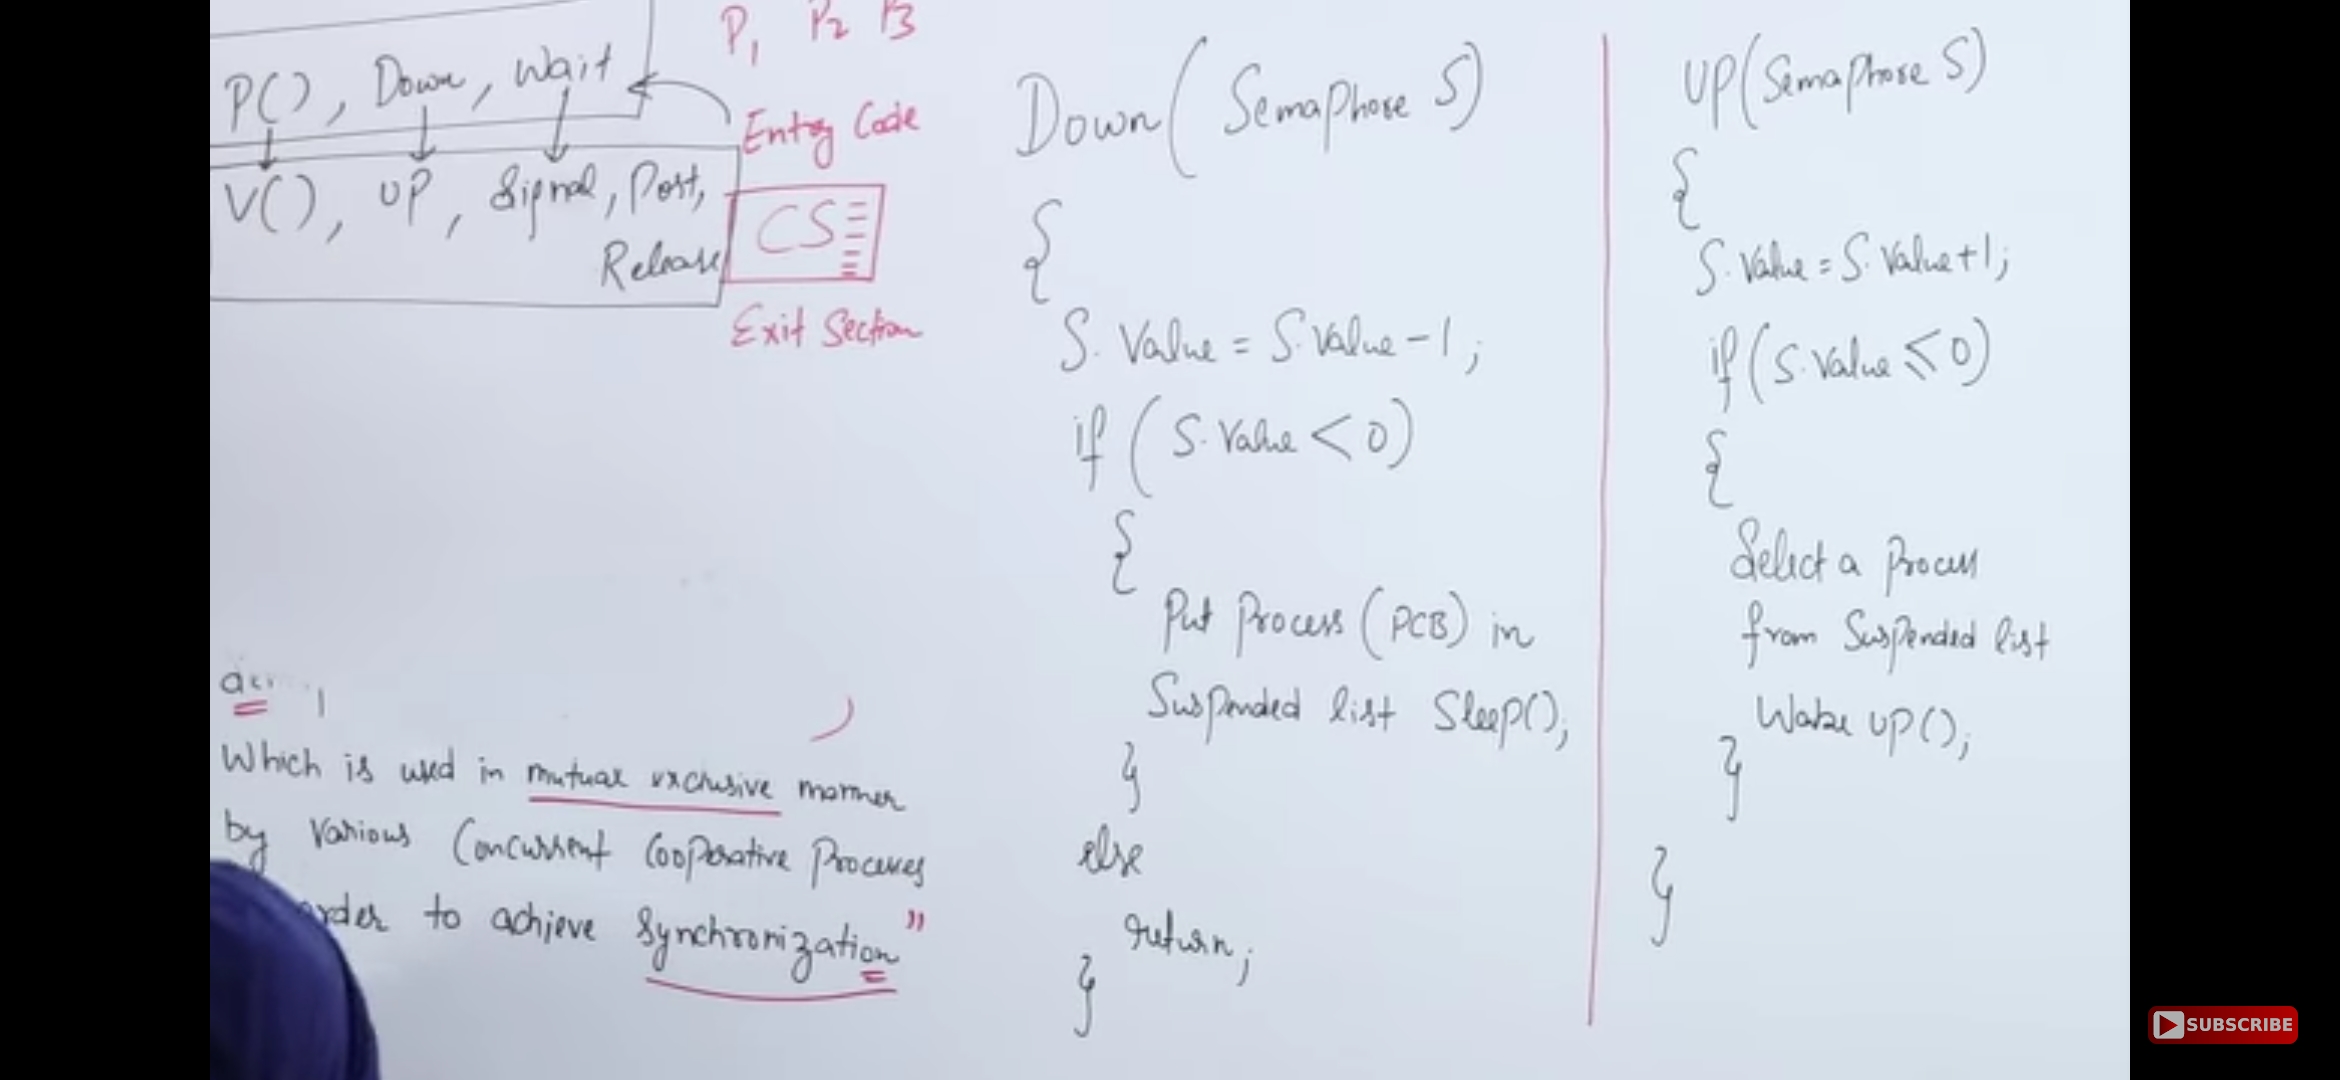 P1 P2 P3
P(), Down, Wait
Entry Code
V(), UP, Signal, Post,
Release
CS
Exit Section
Which is used in mutual exclusive manner
by various Concurrent Cooperative Processes
order to achieve Synchronization"
Down(Semaphore S)
{
S.Value = S.Value-1;
if (S.Value < 0)
{
Put Process (PCB) in
Suspended list Sleep();
}
else
return;
}
UP(Semaphore S)
{
S.Value = S.Value+1;
if (S.Value ≤ 0)
{
Select a Process
from Suspended list
Wake UP();
}
}
SUBSCRIBE